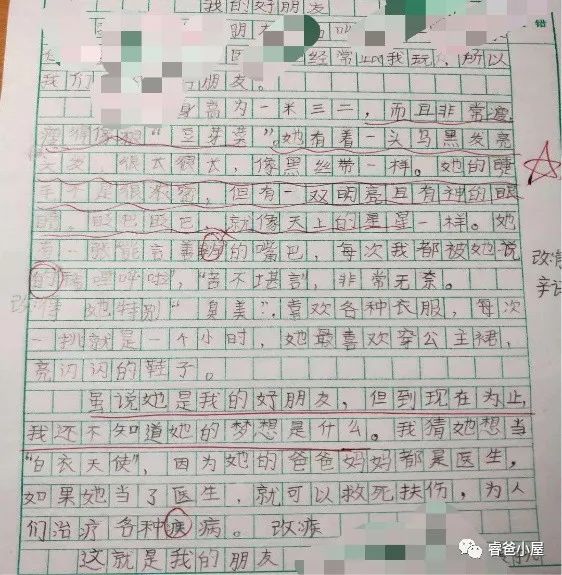 我的好朋友
错
医 经常 我玩 所以
我们 朋友。
身高为一米三二，而且非常瘦，
瘦得像 “豆芽菜”。她有着一头乌黑发亮
头发，很长很长，像黑丝带一样。她的睫
毛不是很浓密，但有一双明亮且有神的眼
睛。眨巴眨巴，就像天上的星星一样。她
有一张能言善 的嘴巴，每次我都被她说
的 哩呼啦，“苦不堪言，非常无奈。
改 她特别“臭美”，喜欢各种衣服，每次
一挑就是一个小时，她最喜欢穿公主裙，
亮闪闪的鞋子。
虽说她是我的好朋友，但到现在为止，
我还不知道她的梦想是什么。我猜她想当
“白衣天使”，因为她的爸爸妈妈都是医生，
如果她当了医生，就可以救死扶伤，为人
们治疗各种疾病。 改疾
这就是我的朋友
睿爸小屋